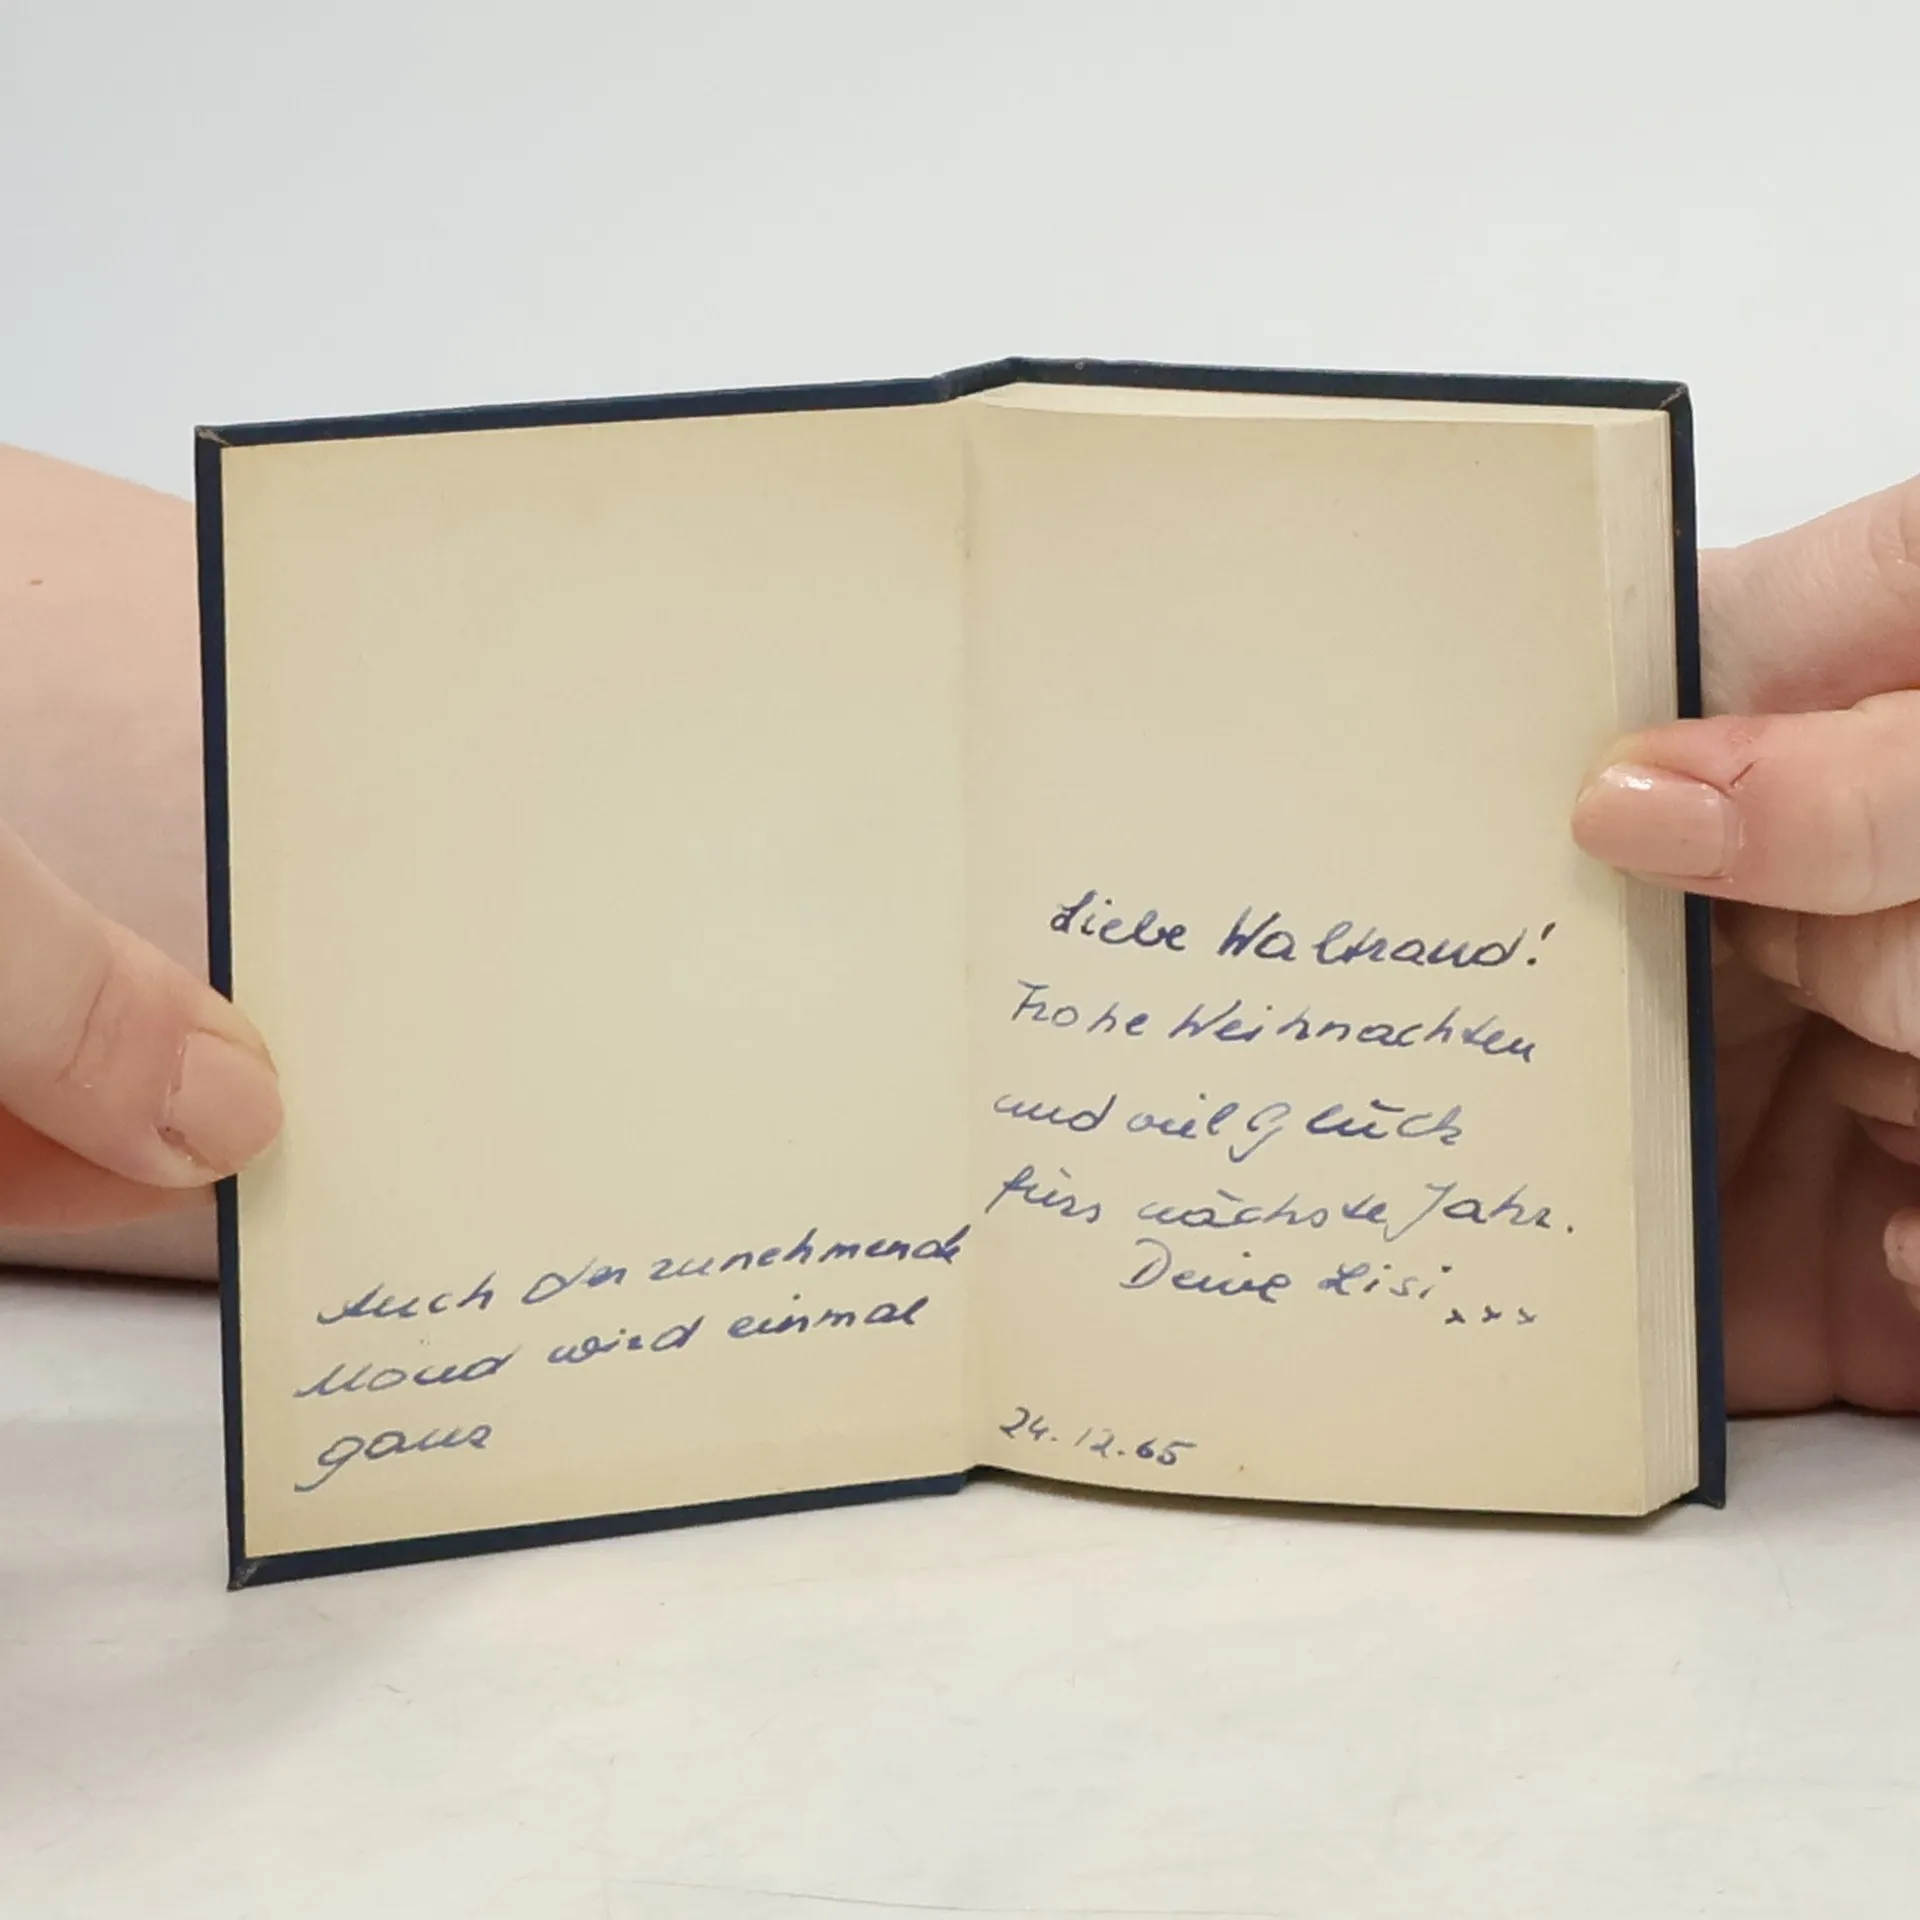 Auch der zunehmende
Mond wird einmal
ganz
Liebe Waltraud!
Frohe Weihnachten
und viel Glück
fürs nächste Jahr.
Deine Lisi xxx
24.12.65